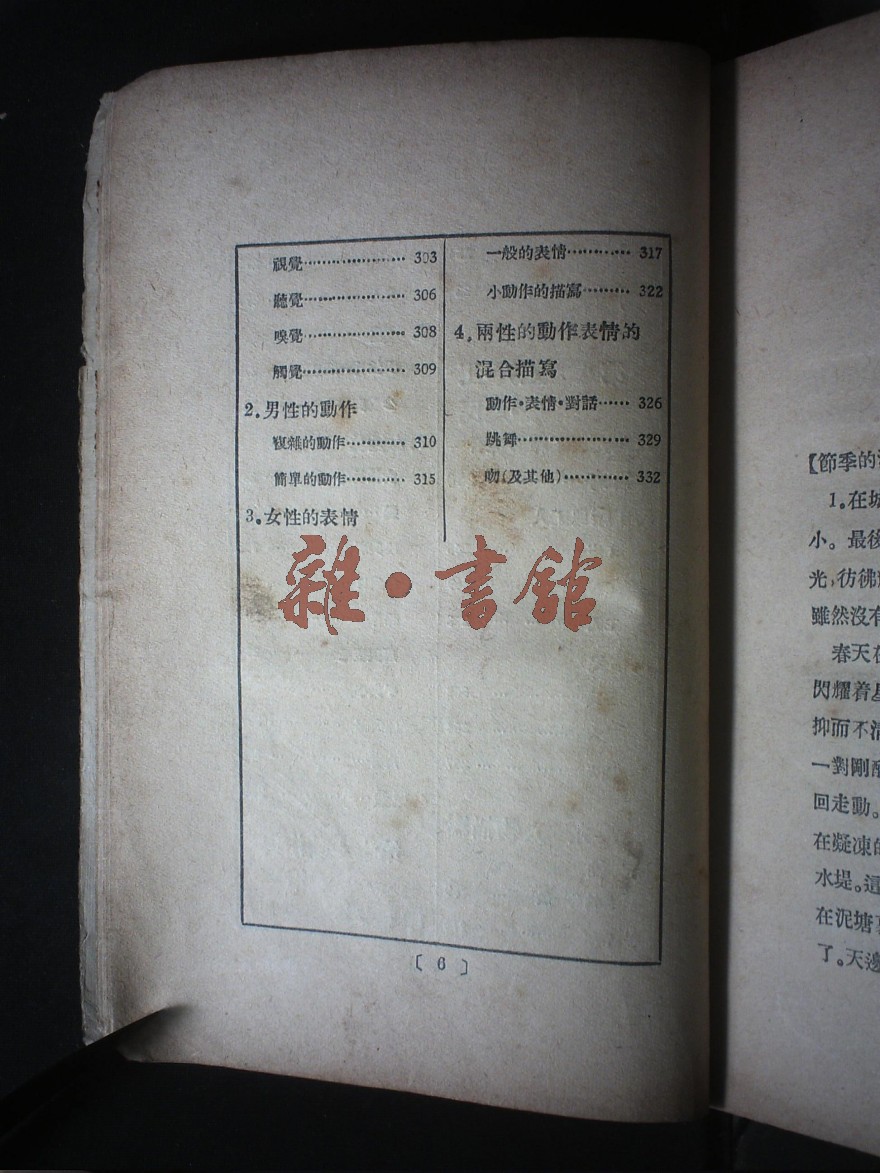 視覺………………… 303
聽覺………………… 306
嗅覺………………… 308
觸覺………………… 309
2.男性的動作
複雜的動作………… 310
簡單的動作………… 315
3.女性的表情
一般的表情………… 317
小動作的描寫……… 322
4.兩性的動作表情的
混合描寫
動作・表情・對話…… 326
跳舞………………… 329
吻(及其他)………… 332
雜・書館
〔 6 〕
【節季的
1.在城
小。最後
光,彷彿
雖然沒有
春天在
閃耀着星
抑而不清
一對剛醉
回走動。
在凝凍的
水堤。這
在泥塘裏
了。天邊